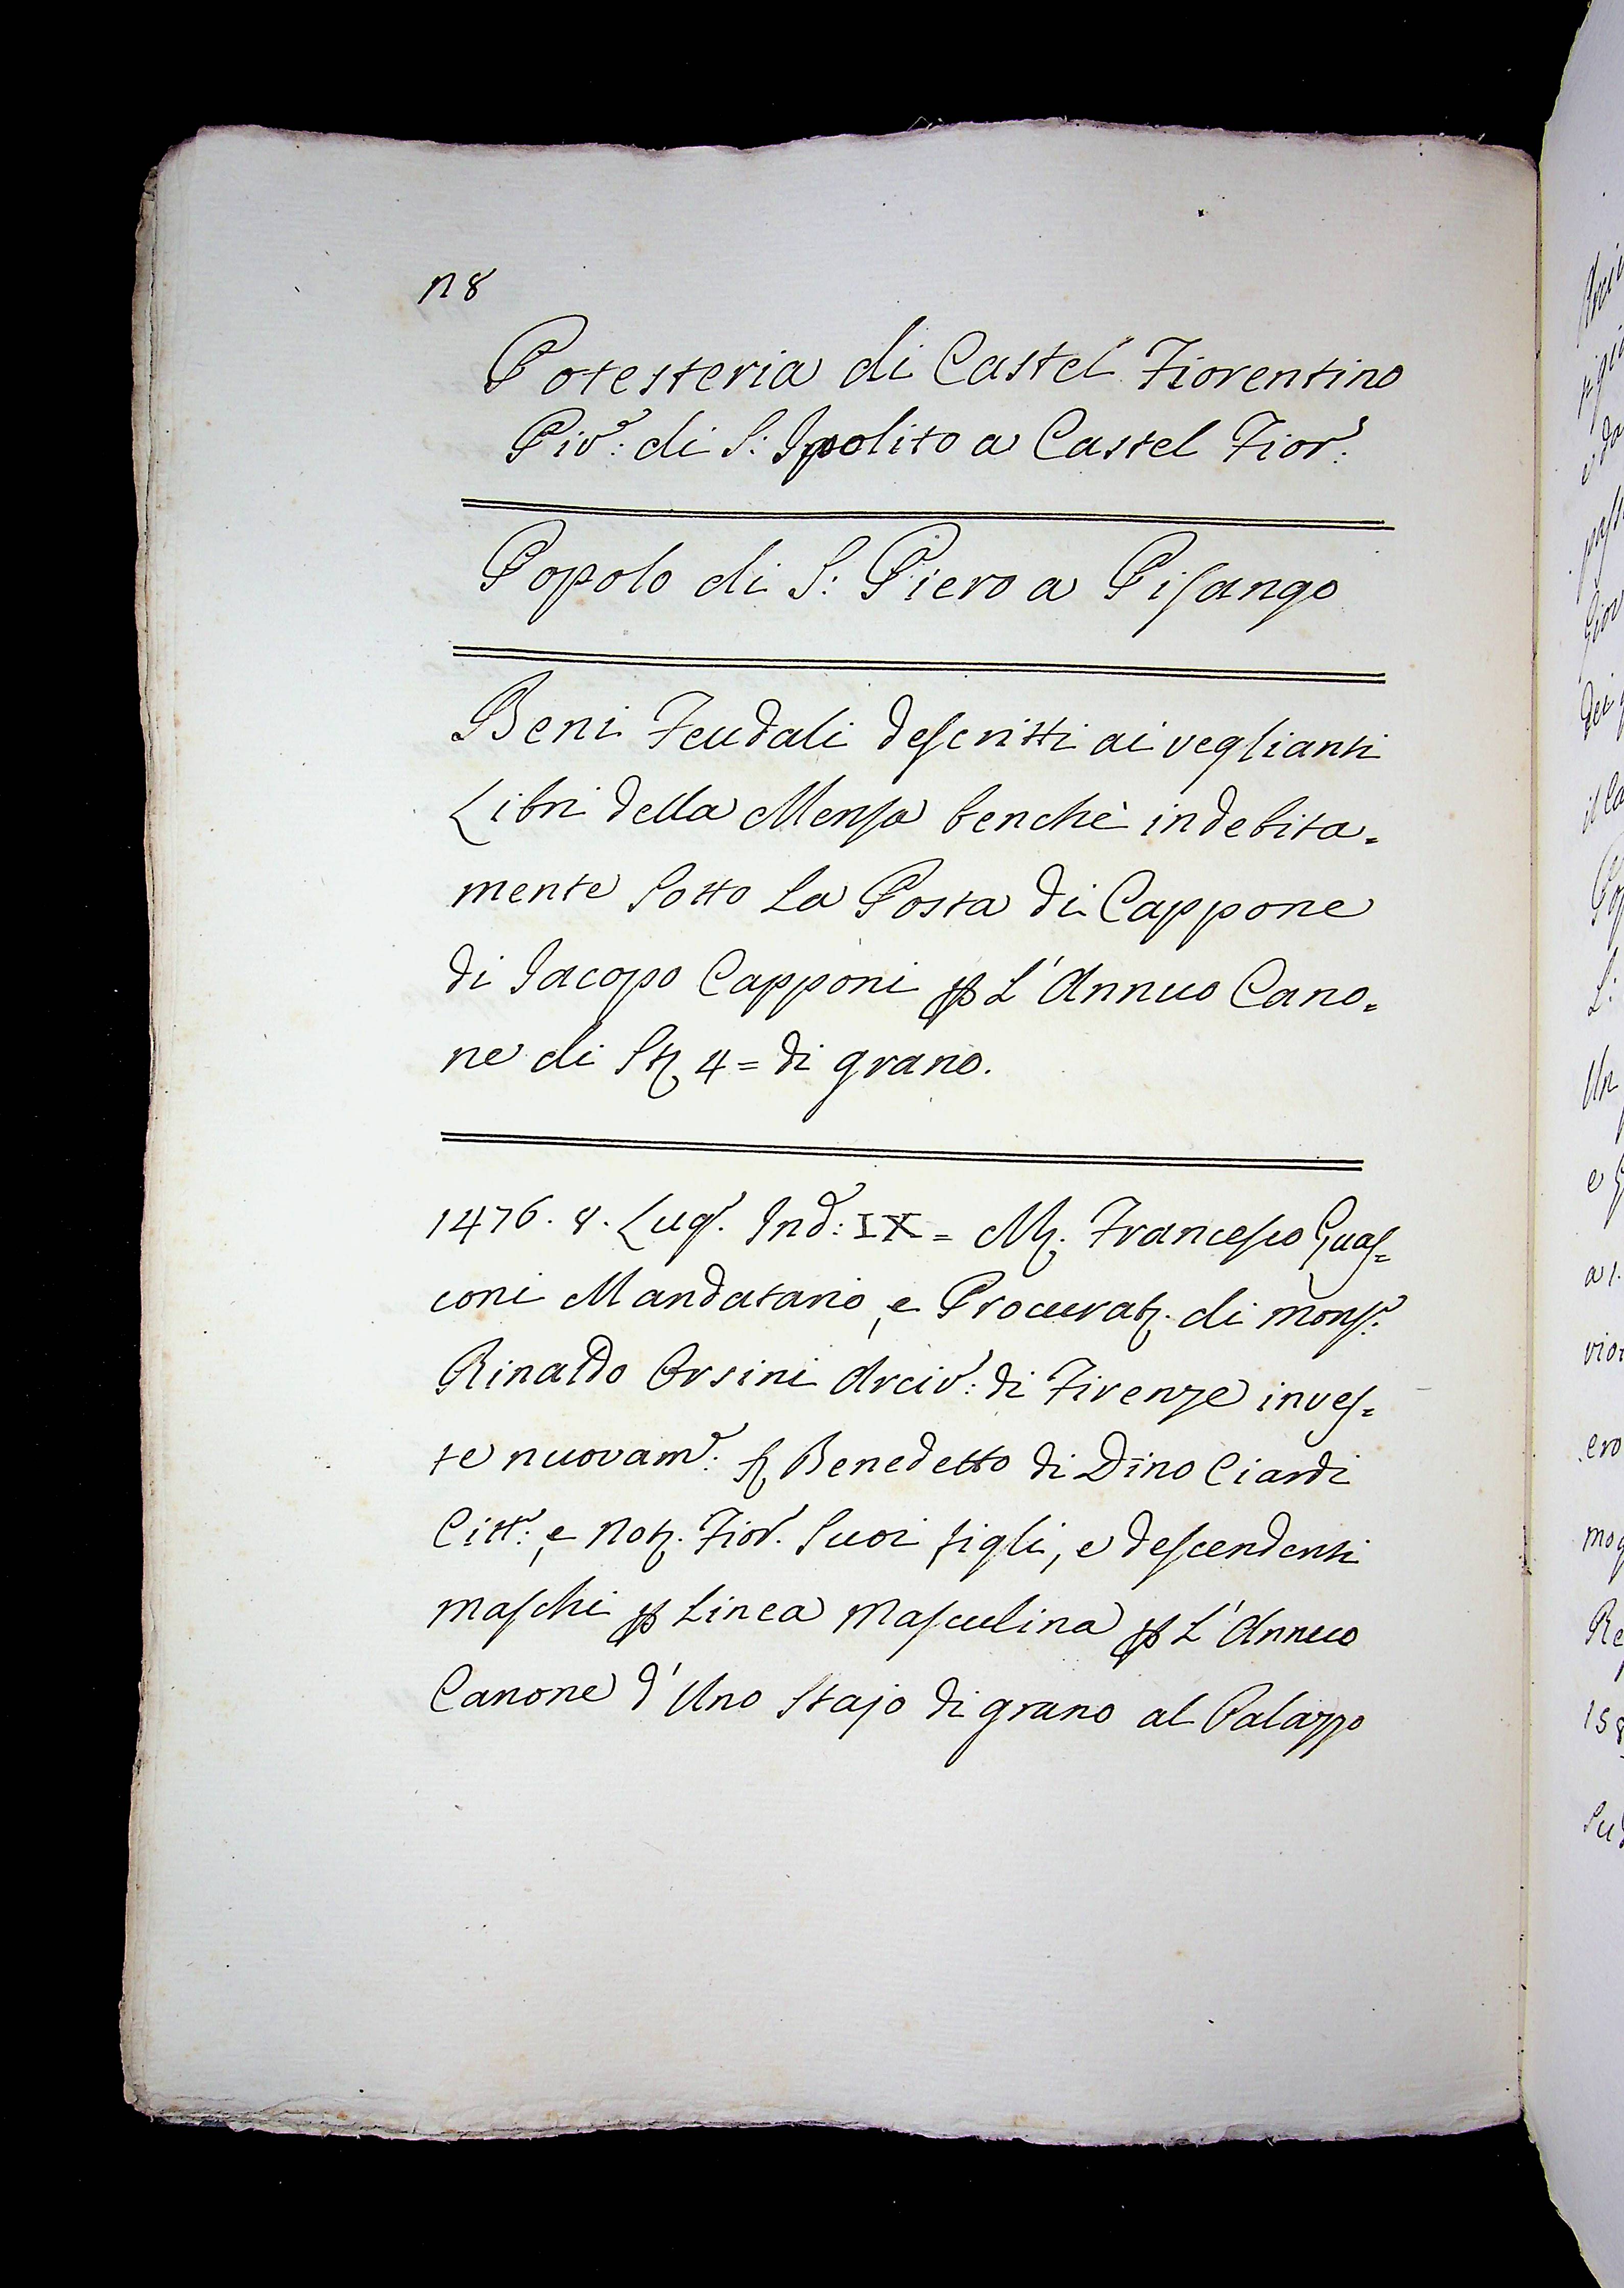 n 8
Potesteria di Castel Fiorentino
Piv.e: di S: Ipolito a Castel Fior:
Popolo di S: Piero a Pisango
Beni Feudali descritti ai veglianti
Libri della Mensa benchè indebita=
mente Sotto La Posta di Cappone
di Jacopo Capponi ꝑ L' Annuo Cano=
ne di St 4 = di grano.
1476. 8. Lug. Ind: IX = M. Francesco Guas=
coni Mandatario, e Procurat. di Mons:
Rinaldo Orsini Arciv: di Firenze inves=
te nuovam: S Benedetto di Dino Ciardi
Citt:, e Not. Fior. Suoi figli, e descendenti
maschi ꝑ Linea Masculina ꝑ L' Annuo
Canone d' Uno Stajo di grano al Palazzo